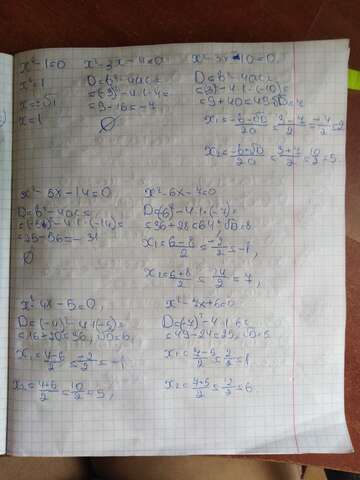 x²-1=0
x²=1
x=±√1
x=1
x²-3x-4=0
D=b²-4ac=
=(-3)²-4·1·4=
=9-16=-7
∅
x²-3x-10=0
D=b²-4ac=
=(3)²-4·1·(-10)=
=9+40=49 √D=7
x₁=(-b-√D)/2a=(3-7)/2=-4/2=-2
x₂=(-b+√D)/2a=(3+7)/2=10/2=5
x²-5x-14=0
D=b²-4ac=
=25-56=-31
∅
x²-6x-7=0
D=(6)²-4·1·(-7)=
=36+28=64 √D=8
x₁=(6-8)/2=-2/2=-1,
x₂=(6+8)/2=14/2=7,
x²-4x-5=0,
D=(-4)²-4·1(-5)=
=16+20=36, √D=6,
x₁=(4-6)/2=-2/2=-1
x₂=(4+6)/2=10/2=5,
x²-7x+6=0,
D=(-7)²-4·1·6=
=49-24=25, √D=5
x₁=(7-5)/2=2/2=1
x₂=(7+5)/2=12/2=6